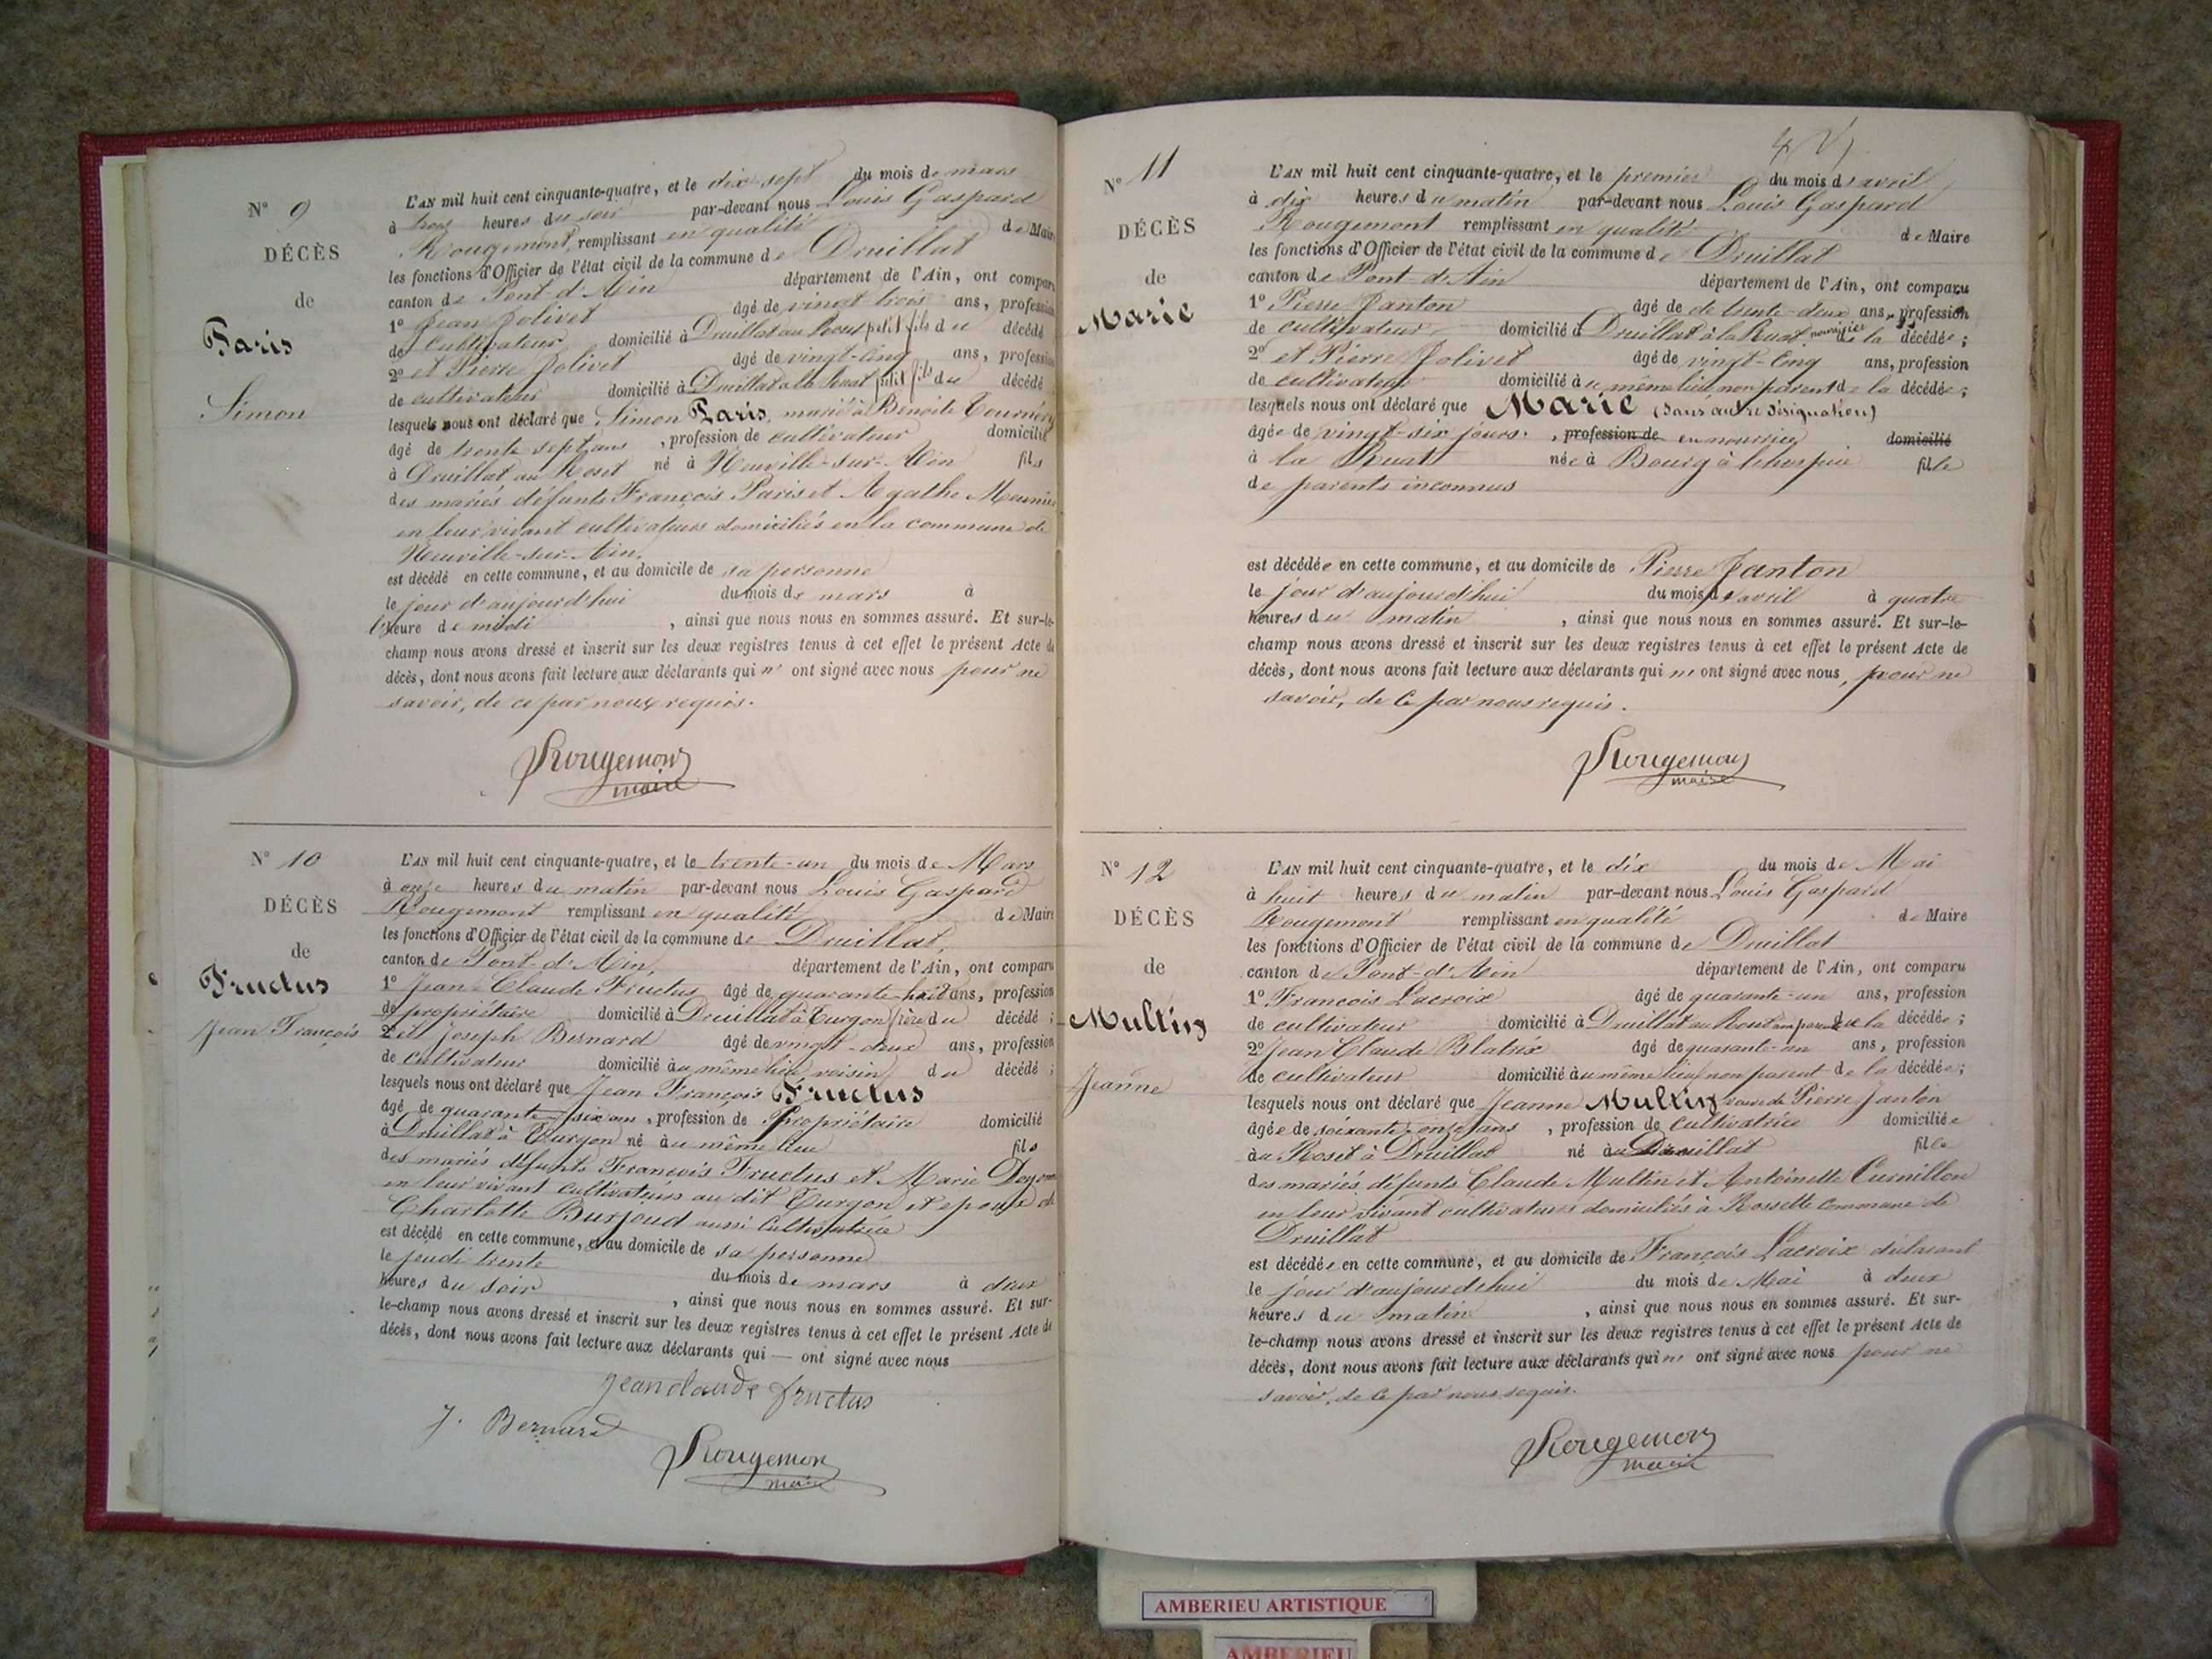 N° 9
DÉCÈS
de
Paris
Simon
L'AN mil huit cent cinquante-quatre, et le dix-sept du mois de mars
à trois heures du soir par-devant nous Louis Gaspard
Rougemont, remplissant en qualité de Maire
les fonctions d'Officier de l'état civil de la commune de Druillat
canton de Pont d'Ain département de l'Ain, ont comparu
1° Jean Jolivet âgé de vingt trois ans, profession
de Cultivateur domicilié à Druillat au petit fils du décédé
2° et Pierre Jolivet âgé de vingt-cinq ans, profession
de cultivateur domicilié à Druillat à la Ruat petit fils du décédé
lesquels nous ont déclaré que Simon Paris, marié à Benoite
âgé de trente sept ans, profession de cultivateur domicilié
à Druillat au Roset né à Neuville-sur-Ain fils
des mariés défunts François Paris et Agathe Meunier
en leur vivant cultivateurs domiciliés en la commune de
Neuville-sur-Ain.
est décédé en cette commune, et au domicile de sa personne
le jour d'aujourd'hui du mois de mars à
l'heure de midi, ainsi que nous nous en sommes assuré. Et sur-le-
champ nous avons dressé et inscrit sur les deux registres tenus à cet effet le présent Acte de
décès, dont nous avons fait lecture aux déclarants qui n' ont signé avec nous pour ne
savoir, de ce par nous requis.
Rougemont
maire
N° 10
DÉCÈS
de
Fructus
Jean François
L'AN mil huit cent cinquante-quatre, et le trente-un du mois de Mars
à onze heures du matin par-devant nous Louis Gaspard
Rougemont remplissant en qualité de Maire
les fonctions d'Officier de l'état civil de la commune de Druillat,
canton de Pont-d'Ain, département de l'Ain, ont comparu
1° Jean-Claude Fructus âgé de quarante huit ans, profession
de propriétaire domicilié à Druillat à Turgon frère du décédé ;
2° et Joseph Bernard âgé de vingt-deux ans, profession
de cultivateur domicilié au même lieu, voisin du décédé ;
lesquels nous ont déclaré que Jean François Fructus
âgé de quarante six ans, profession de Propriétaire domicilié
à Druillat à Turgon né au même lieu fils
des mariés défunts François Fructus et Marie
en leur vivant cultivateurs au dit Turgon et époux de
Charlotte Burjoud aussi Cultivatrice
est décédé en cette commune, et au domicile de sa personne
le jeudi trente du mois de mars à deux
heures du soir, ainsi que nous nous en sommes assuré. Et sur-
le-champ nous avons dressé et inscrit sur les deux registres tenus à cet effet le présent Acte de
décès, dont nous avons fait lecture aux déclarants qui — ont signé avec nous
jean claude fructus
J. Bernard
Rougemont
maire
N° 11
DÉCÈS
de
Marie
L'AN mil huit cent cinquante-quatre, et le premier du mois d'avril
à dix heures du matin par-devant nous Louis Gaspard
Rougemont remplissant en qualité de Maire
les fonctions d'Officier de l'état civil de la commune de Druillat
canton de Pont-d'Ain département de l'Ain, ont comparu
1° Pierre Janton âgé de de trente-deux ans, profession
de cultivateur domicilié à Druillat à la Ruat, nourricier de la décédée ;
2° et Pierre Jolivet âgé de vingt-cinq ans, profession
de cultivateur domicilié au même lieu, non parent de la décédée ;
lesquels nous ont déclaré que Marie (sans autre désignation)
âgée de vingt-six jours, profession de en nourrice domicilié
à la Ruat née à Bourg à l'hospice fille
de parents inconnus
est décédée en cette commune, et au domicile de Pierre Janton
le jour d'aujourd'hui du mois d'avril à quatre
heures du matin, ainsi que nous nous en sommes assuré. Et sur-le-
champ nous avons dressé et inscrit sur les deux registres tenus à cet effet le présent Acte de
décès, dont nous avons fait lecture aux déclarants qui n' ont signé avec nous, pour ne
savoir, de ce par nous requis.
Rougemont
maire
N° 12
DÉCÈS
de
Multin
Jeanne
L'AN mil huit cent cinquante-quatre, et le dix du mois de Mai
à huit heures du matin par-devant nous Louis Gaspard
Rougemont remplissant en qualité de Maire
les fonctions d'Officier de l'état civil de la commune de Druillat
canton de Pont-d'Ain département de l'Ain, ont comparu
1° François Lacroix âgé de quarante-un ans, profession
de cultivateur domicilié à Druillat au de la décédée ;
2° Jean Claude Blatrix âgé de quarante-un ans, profession
de cultivateur domicilié au même lieu, non parent de la décédée ;
lesquels nous ont déclaré que Jeanne Multin veuve de Pierre Janton
âgée de soixante-onze ans, profession de cultivatrice domiciliée
au Roset à Druillat né à Druillat fille
des mariés défunts Claude Multin et Antoinette Curnillon
en leur vivant cultivateurs domiciliés à Rossette commune de
Druillat
est décédée en cette commune, et au domicile de François Lacroix déclarant
le jour d'aujourd'hui du mois de Mai à deux
heures du matin, ainsi que nous nous en sommes assuré. Et sur-
le-champ nous avons dressé et inscrit sur les deux registres tenus à cet effet le présent Acte de
décès, dont nous avons fait lecture aux déclarants qui n' ont signé avec nous pour ne
savoir, de ce par nous requis.
Rougemont
maire
AMBERIEU ARTISTIQUE
AMBERIEU